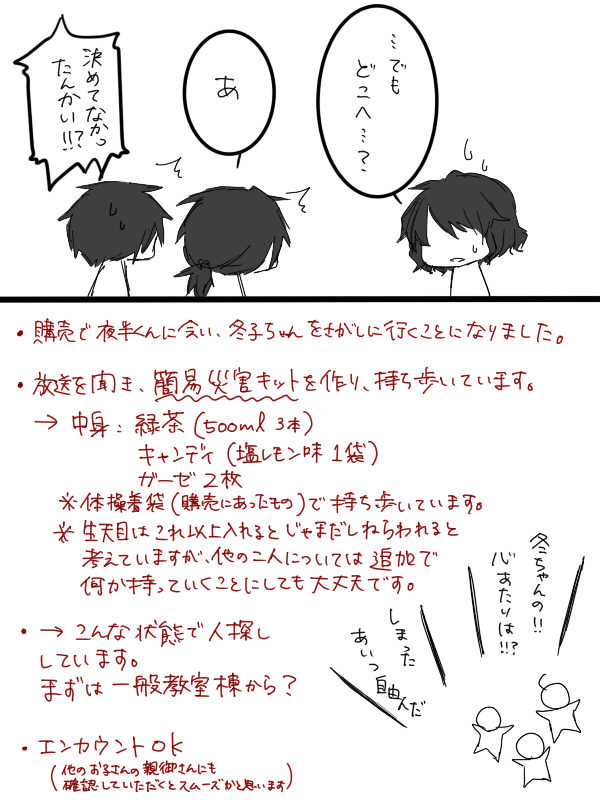 …でも
どこへ…?
あ
決めてなかっ
たんかい!!?
・購売で夜半くんに会い、冬子ちゃんをさがしに行くことになりました。
・放送を聞き、簡易災害キットを作り、持ち歩いています。
→ 中身：緑茶（500ml 3本）
キャンディ（塩レモン味 1袋）
ガーゼ 2枚
※体操着袋（購売にあったもの）で持ち歩いています。
※生天目はこれ以上入れるとじゃまだしねらわれると
考えていますが、他の二人については追加で
何か持っていくことにしても大丈夫です。
・→こんな状態で人探し
しています。
まずは一般教室棟から？
・エンカウントok
（他のお子さんの親御さんにも
確認していただくとスムーズかと思います）
冬ちゃんの!!
心あたりは!!?
しまった
あいつ自由人だ